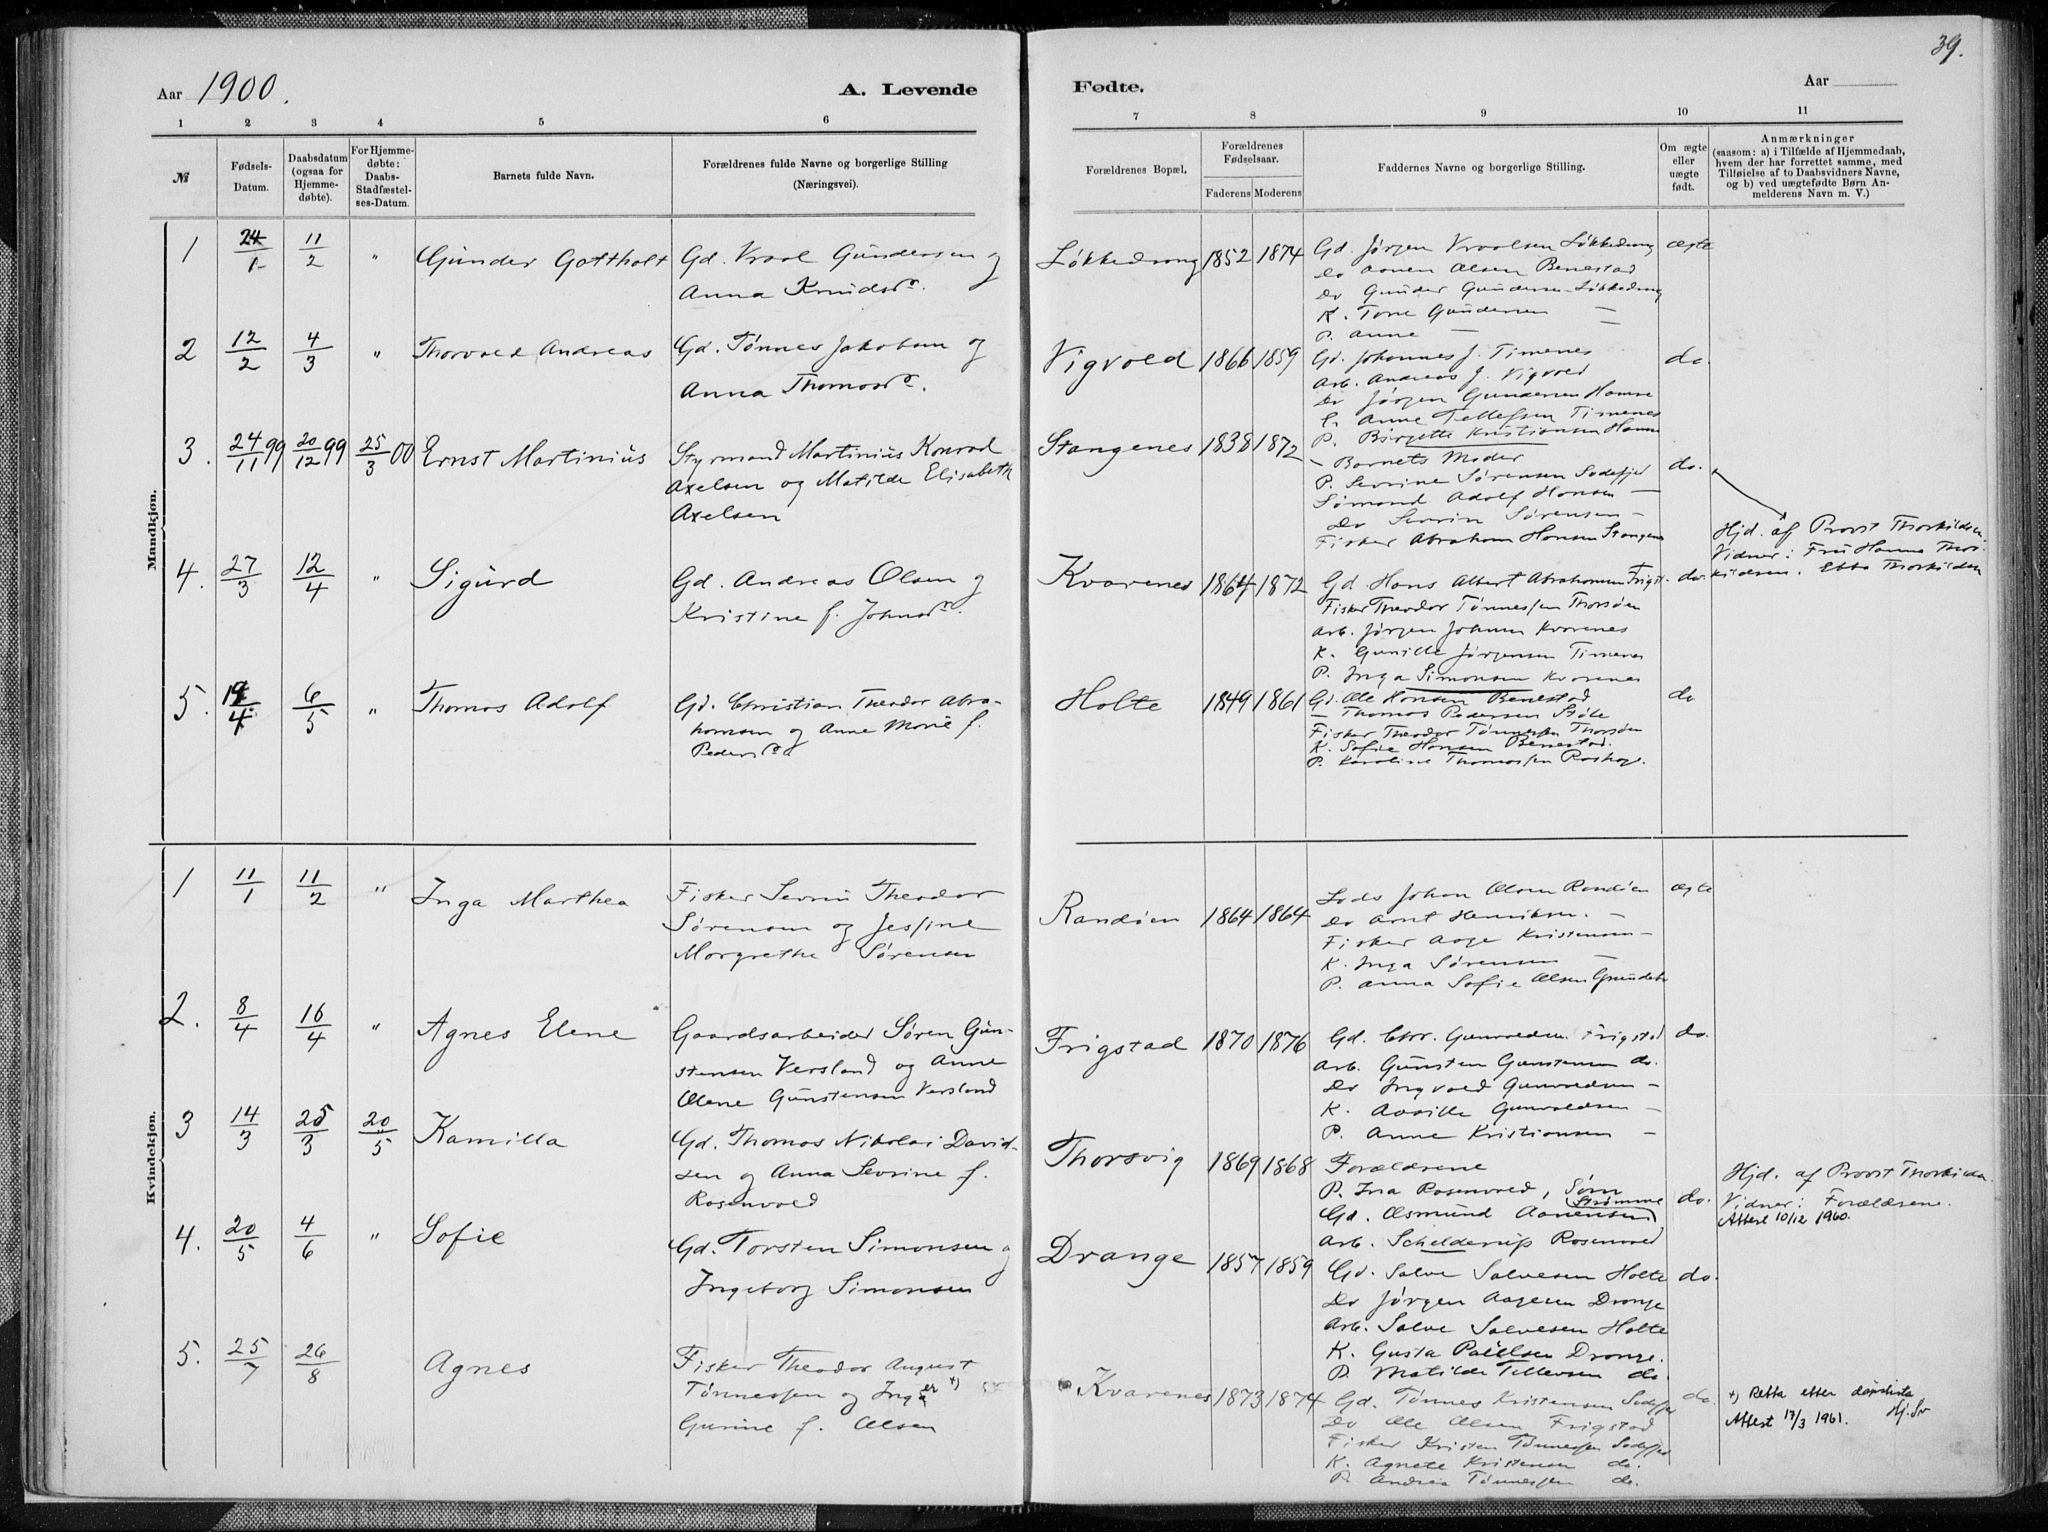 39.
Aar 1900. A. Levende Fødte. Aar
1 2 3 4 5 6 7 8 9 10 11
№
Fødsels-
Datum.
Daabsdatum
(ogsaa for
Hjemme-
døbte).
For Hjemme-
døbte:
Daabs-
Stadfæstel-
ses-Datum.
Barnets fulde Navn.
Forældrenes fulde Navne og borgerlige Stilling
(Næringsvei).
Forældrenes Bopæl.
Forældrenes
Fødselsaar.
Faderens Moderens
Faddernes Navne og borgerlige Stilling.
Om ægte
eller
uægte
født.
Anmærkninger
(saasom: a) i Tilfælde af Hjemmedaab,
hvem der har forrettet samme, med
Tilføielse af to Daabsvidners Navne,
og b) ved uægtefødte Børn An-
melderens Navn m. V.)
Mandkjøn.
1 24/1 11/2 " Gunder Gottholt
Gd. Vraal Gundersen og
Anna Knudsdr.
Løkkedrong 1852 1874
Gd. Jørgen Vraalsen Løkkedrong
Do Aanen Olsen Benestad
Do Gunder Gundersen Løkkedrong
K. Tone Gundersen —
P. Anne — —
ægte
2 12/2 4/3 " Thorvald Andreas
Gd. Tønnes Jakobsen og
Anna Thomasdr.
Vigvold 1866 1859
Gd. Johannes J. Timenes
Arb. Andreas J. Vigvold
Do Jørgen Gundersen Hamre
K. Anne Tellefsen Timenes
P. Birgitte Kristiansen Hamre
do.
3. 24/11 99 20/12 99 25/3 00 Ernst Martinius
Styrmand Martinius Konrad
Axelsen og Matilde Elisabeth
Axelsen
Stangenes 1838 1872
— Barnets Moder
P. Sevrine Sørensen Sodefjed
Sømand Adolf Hansen —
Do Sevrin Sørensen —
Fisker Abraham Hansen Stangenes
do.
Hjd. af Provst Thorkildsen.
Vidner: Fru Hanna Thor-
kildsen. Ebba Thorkildsen
4. 27/3 12/4 " Sigurd
Gd. Andreas Olsen og
Kristine f. Johnsdr.
Kvarenes 1864 1872
Gd. Hans Albert Abrahamsen Frigst.
Fisker Theodor Tønnessen Thorsøen
Arb. Jørgen Johnsen Kvarenes
K. Gunille Jørgensen Timenes
P. Inga Simonsen Kvarenes
do.
5. 19/4 6/5 " Thomas Adolf
Gd. Christian Theodor Abra-
hamsen og Anne Marie f.
Pedersdr
Holte 1849 1861
Gd. Ole Hansen Benestad
— Thomas Pedersen Støle
Fisker Theodor Tønnessen Thorsøen
K. Sofie Hansen Benestad.
P. Karoline Thomassen
do
Kvindekjøn.
1 11/1 11/2 " Inga Marthea
Fisker Sevrin Theodor
Sørensen og Jessine
Margrethe Sørensen
Randøen 1864 1864
Lods Johan Olsen Randøen
Do Arnt Henriksen. —
Fisker Aage Kristensen —
K. Inga Sørensen —
P. Anna Sofie Olsen
ægte
2. 8/4 16/4 " Agnes Elene
Gaardsarbeider Søren Gun-
stensen Versland og Anne
Olene Gunstensen Versland
Frigstad 1870 1876
Gd. Chr. Gunvaldsen Frigstad
Arb. Gunsten Gunstensen do.
Do Ingvald Gunvaldsen —
K. Aasille Gunvaldsen —
P. Anne Kristiansen —
do.
3 14/3 25/3 20/5 Kamilla
Gd. Thomas Nikolai David-
sen og Anna Sevrine f.
Rosenvold
Thorsvig 1869 1868
Forældrene
P. Ina Rosenvold, Søm
Gd. Osmund Aanensen (Strømme)
Arb. Schelderup Rosenvold
do.
Hjd. af Provst Thorkildsen.
Vidner: Forældrene.
Attest 10/12 1960.
4. 20/5 4/6 " Sofie
Gd. Torsten Simonsen og
Ingeborg Simonsen
Drange 1857 1859
Gd. Salve Salvesen Holte
Do Jørgen Aagesen Drange
Arb. Salve Salvesen Holte
K. Gusta Paulsen Drange.
P. Matilde Tellevsen do.
do.
5. 25/7 26/8 Agnes
Fisker Theodor August
Tønnessen og Inger +)
Gurine f. Olsen
Kvarenes 1873 1874
Gd. Tønnes Kristensen Sodefjed
Do Ole Olsen Frigstad
Fisker Kristen Tønnessen Sodefjed
K. Agnete Kristensen do.
P. Andrea Tønnessen do.
do.
+) Retta etter dåpslista
Attest 17/3 1961. Hj. Sv